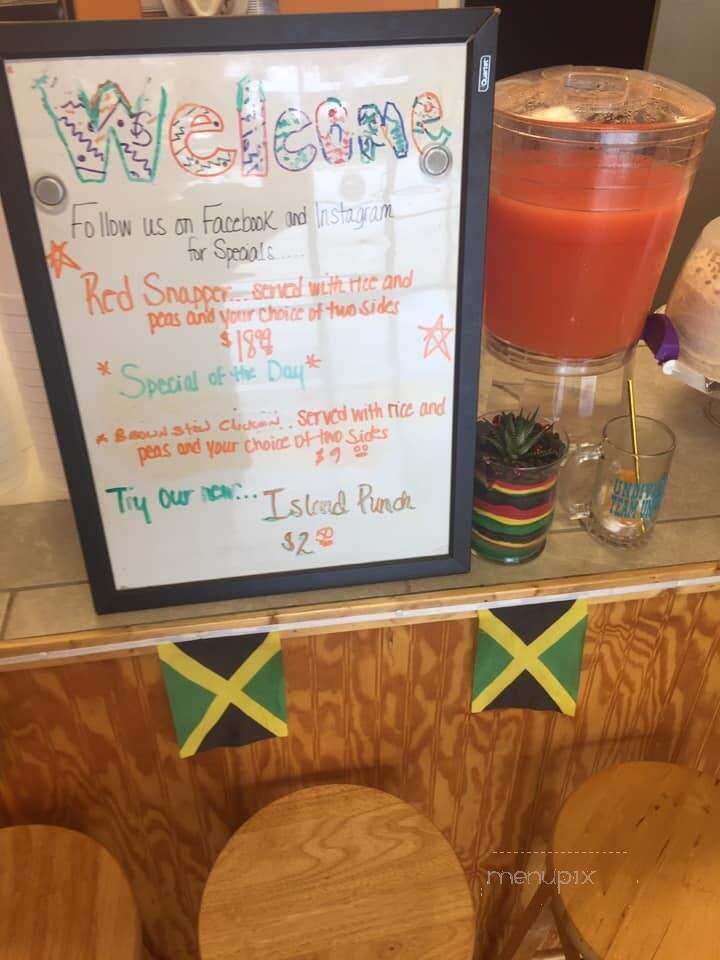 Quartet
Welcome
Follow us on Facebook and Instagram
for Specials.....
Red Snapper... served with rice and
peas and your choice of two sides
$18.99
* Special of the Day *
* Brown Stew Chicken.. Served with rice and
peas and your choice of two sides
$9.00
Try our new... Island Punch
$2.50
TEAM
menupix